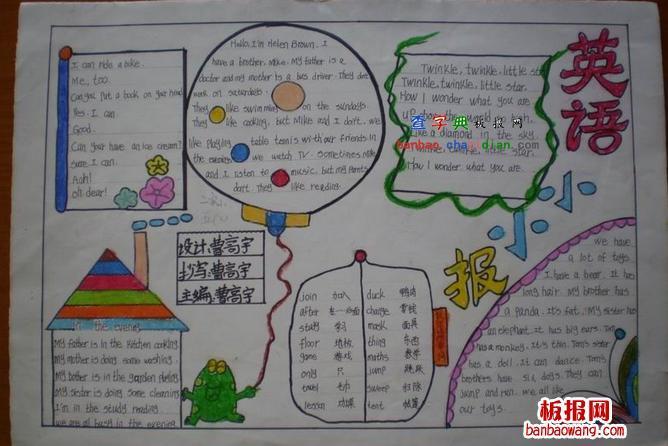 I can ride a bike.
Me, too.
Can you put a book on your head
Yes I can
Good.
Can your have an ice cream?
sure. I can.
Aah!
oh dear!
Hello, I'm Helen Brown. I
have a brother. Mike. My father is a
doctor and my mother is a bus driver. They don't
work on saturdays.
They like swimming on the sundays.
They like cooking, but Mike and I don't. we
like playing table tennis with our friends in
the evening we watch TV. sometimes Mike
and I listen to music, but my
don't. They like reading.
Twinkle, twinkle, little star
Twinkle, twinkle, little star.
How I wonder what you are
up above the world
Like a diamond in the sky.
Twinkle, twinkle, little star,
How I wonder what you are.
查字典 板报网
banbao.chazidian.com
英语
小小
报
设计:曹高宇
抄写:曹高宇
主编:曹高宇
In the evening
My father is in the kitchen cooking.
My mother is doing some washing.
My brother is in the garden playing
My sister is doing some cleaning
I'm in the study reading.
we are all busy in the evening
join 加入 duck 鸭肉
after 在…后面 change
study 学习 mask 面具
floor 地板 thing 东西
game 游戏 maths 数学
only 只 jump 跳跃
towel 毛巾 sweep 扫除
lesson 功课 tent 帐篷
we have
a lot of toys.
I have a bear. It has
long hair. My brother has
a panda. It's fat. My sister has
an elephant. It has big ears. Tom
has a monkey. It's thin. Tom's sister
has a doll. It can dance. Tom's
brothers have six dogs. They can
jump and run. we all like
our toys.
板报网
banbaowang.com